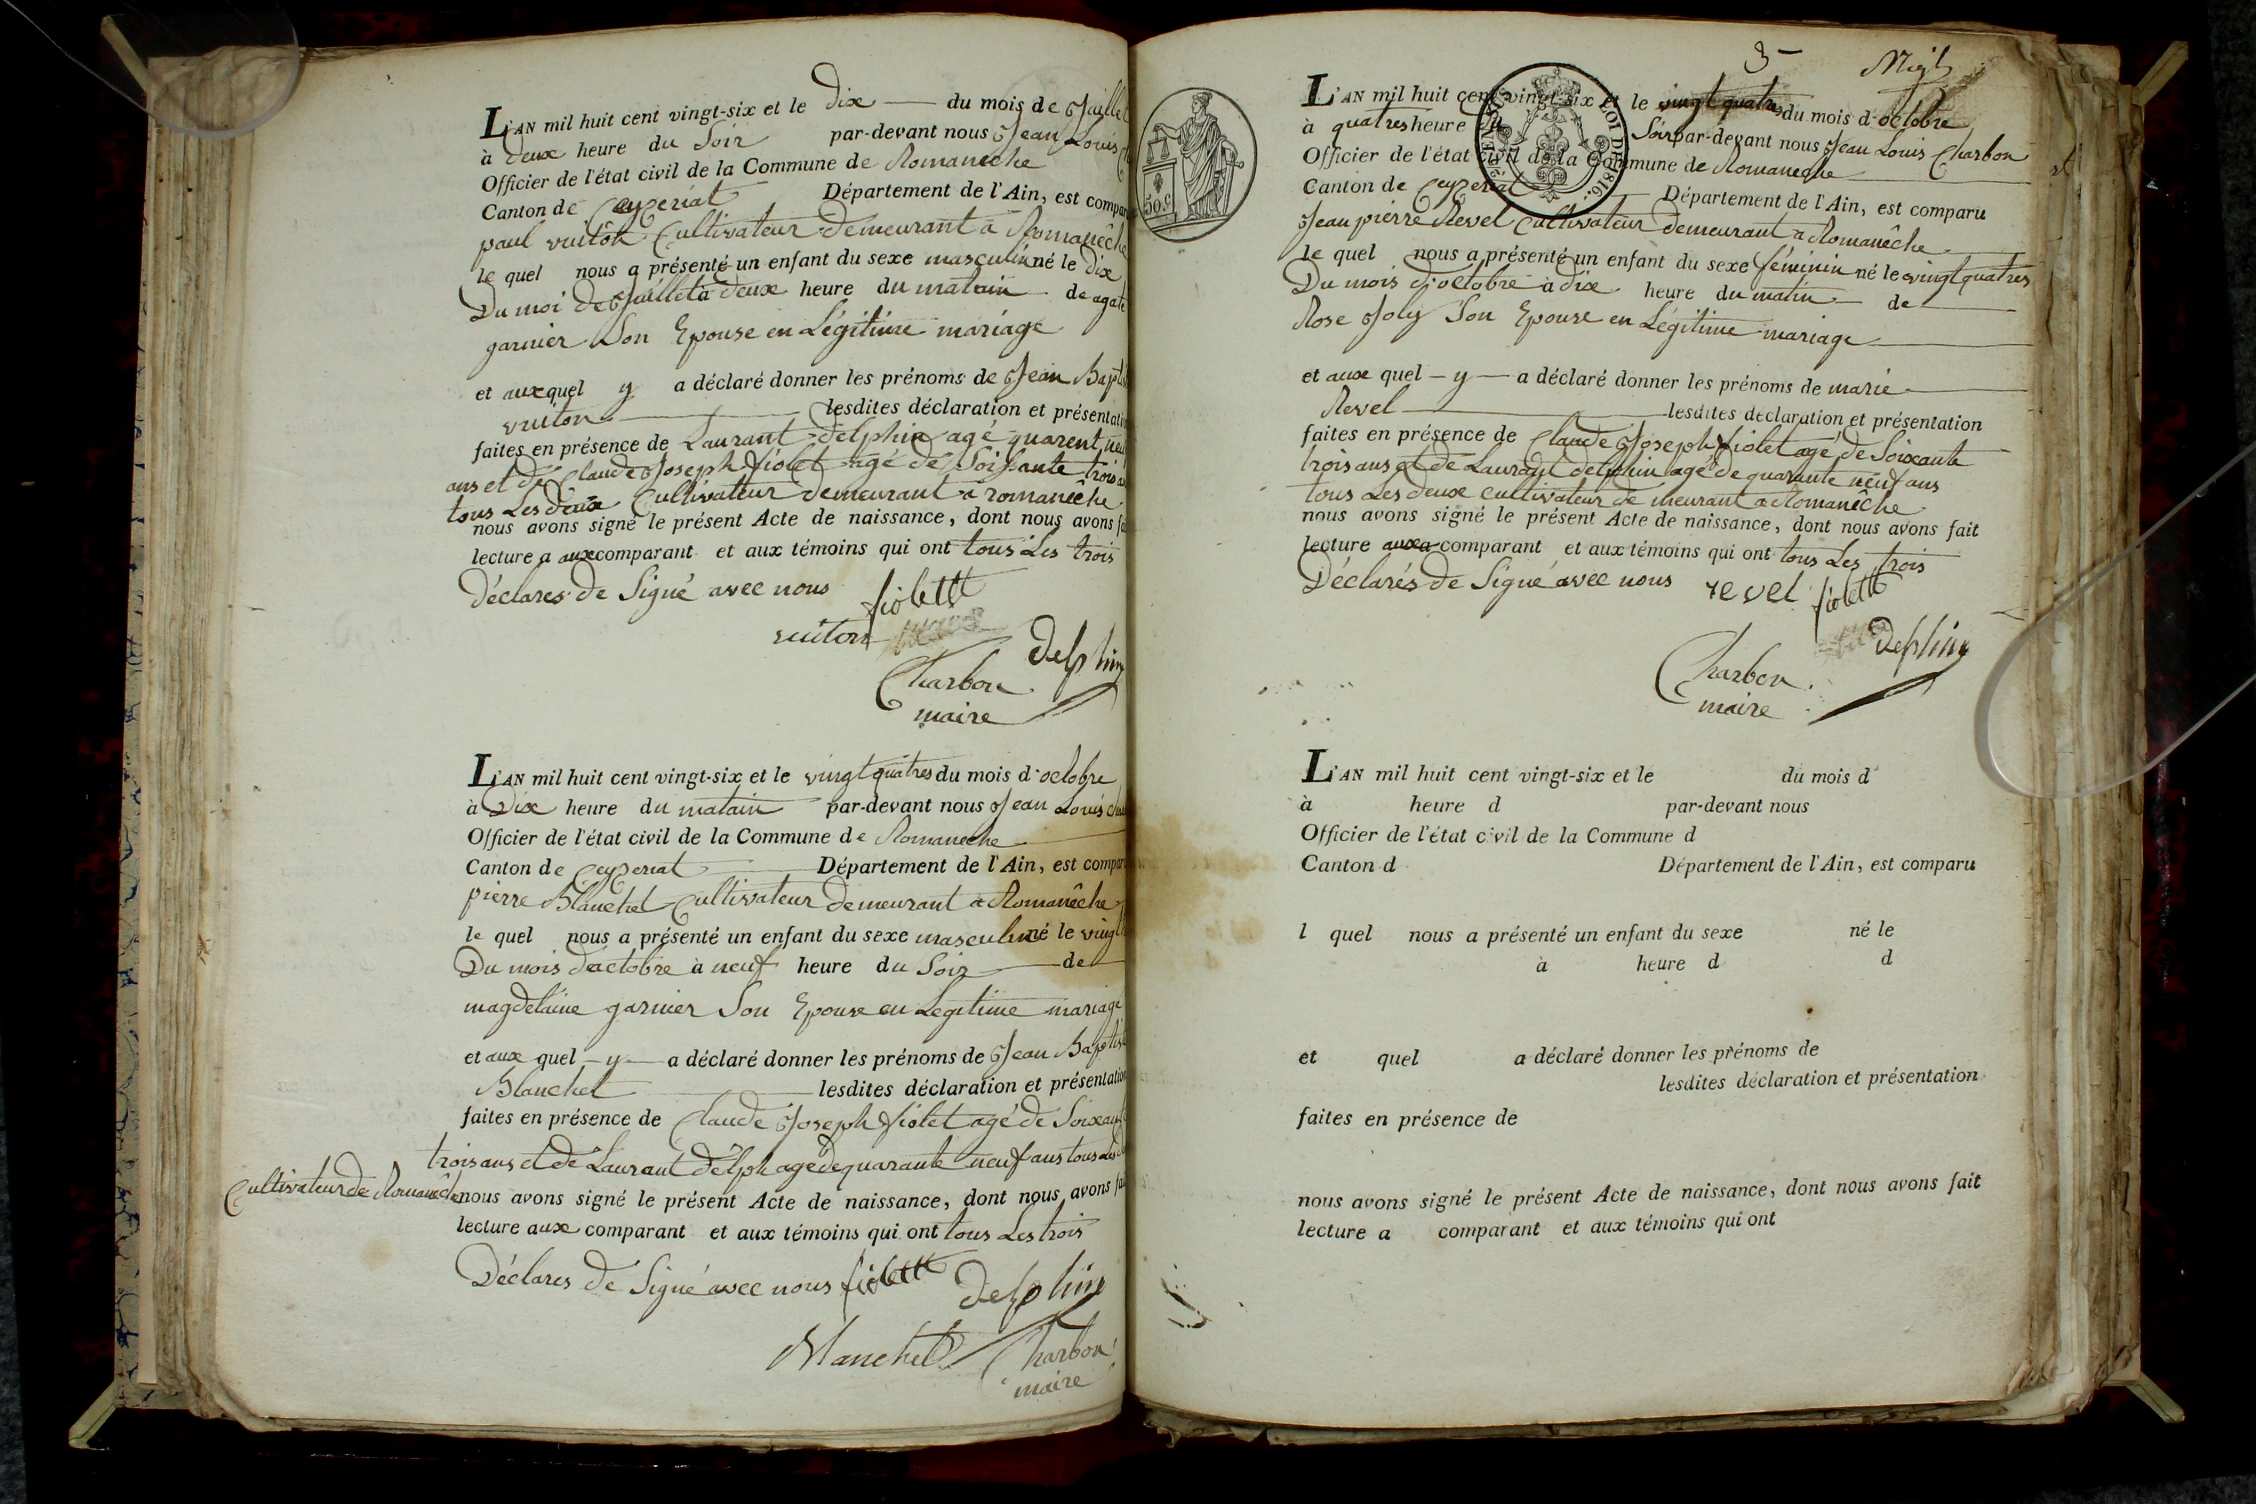 L'AN mil huit cent vingt-six et le dix du mois de Juillet
à deux heure du Soir par-devant nous Jean Louis
Officier de l'état civil de la Commune de Romanêche
Canton de Ceyzeriat Département de l'Ain, est compar
paul vuiton Cultivateur demeurant à Romanêche
le quel nous a présenté un enfant du sexe masculin né le dix
Du moi de Juillet à deux heure du matain de agate
garnier Son Epouse en Légitime mariage
et aux quel y a déclaré donner les prénoms de Jean Baptis
vuiton lesdites déclaration et présentation
faites en présence de Laurant delphin agé quarent neuf
ans et de Claude Joseph fiolet agé de Soissante trois
tous Les deux Cultivateur demeurant à romanêche
nous avons signé le présent Acte de naissance, dont nous avons fa
lecture a aux comparant et aux témoins qui ont tous Les trois
déclares de Signé avec nous fiolett
vuiton
delphin
Charbon
maire
L'AN mil huit cent vingt-six et le vingt quatres du mois d'octobre
à Dix heure du matain par-devant nous Jean Louis
Officier de l'état civil de la Commune de Romaneche
Canton de Ceyzeriat Département de l'Ain, est compar
pierre Blanchet Cultivateur demeurant à Romanêche
le quel nous a présenté un enfant du sexe masculin né le vingt
Du mois d'actobre à neuf heure du Soir de
magdelaine garnier Son Epouse en Legitime mariage
et aux quel y a déclaré donner les prénoms de Jean Baptist
Blanchet lesdites déclaration et présentation
faites en présence de Claude Joseph fiolet agé de Soixan
trois ans et de Laurant delph agé de quarante neuf ans tous Les
Cultivateur de Romanêche nous avons signé le présent Acte de naissance, dont nous avons fai
lecture aux comparant et aux témoins qui ont tous Les trois
Déclares de Signé avec nous fiolett delphin
Blanchet Charbon
maire
3
L'AN mil huit cent vingt-six et le vingt quatres du mois d'octobre
à quatres heure du Soir par-devant nous Jean Louis Charbon
Officier de l'état civil de la Commune de Romaneche
Canton de Ceyzeriat Département de l'Ain, est comparu
50.c
ROI DE
1816.
Jean pierre Revel Cultivateur demeurant à Romanêche
le quel nous a présenté un enfant du sexe féminin né le vingt quatres
Du mois d'octobre à dix heure du matin de
Rose Joly Son Epouse en Légitime mariage
et aux quel y a déclaré donner les prénoms de marie
Revel lesdites déclaration et présentation
faites en présence de Claude Joseph fiolet agé de Soixante
trois ans et de Laurant delphin agé de quarante neuf ans
tous Les deux cultivateur demeurant à Romanêche
nous avons signé le présent Acte de naissance, dont nous avons fait
lecture aux a comparant et aux témoins qui ont tous Les trois
Déclarés de Signé avec nous revel fiolett
delphin
Charbon
maire
L'AN mil huit cent vingt-six et le du mois d
à heure d par-devant nous
Officier de l'état civil de la Commune d
Canton d Département de l'Ain, est comparu
l quel nous a présenté un enfant du sexe né le
à heure d d
et quel a déclaré donner les prénoms de
lesdites déclaration et présentation
faites en présence de
nous avons signé le présent Acte de naissance, dont nous avons fait
lecture a comparant et aux témoins qui ont